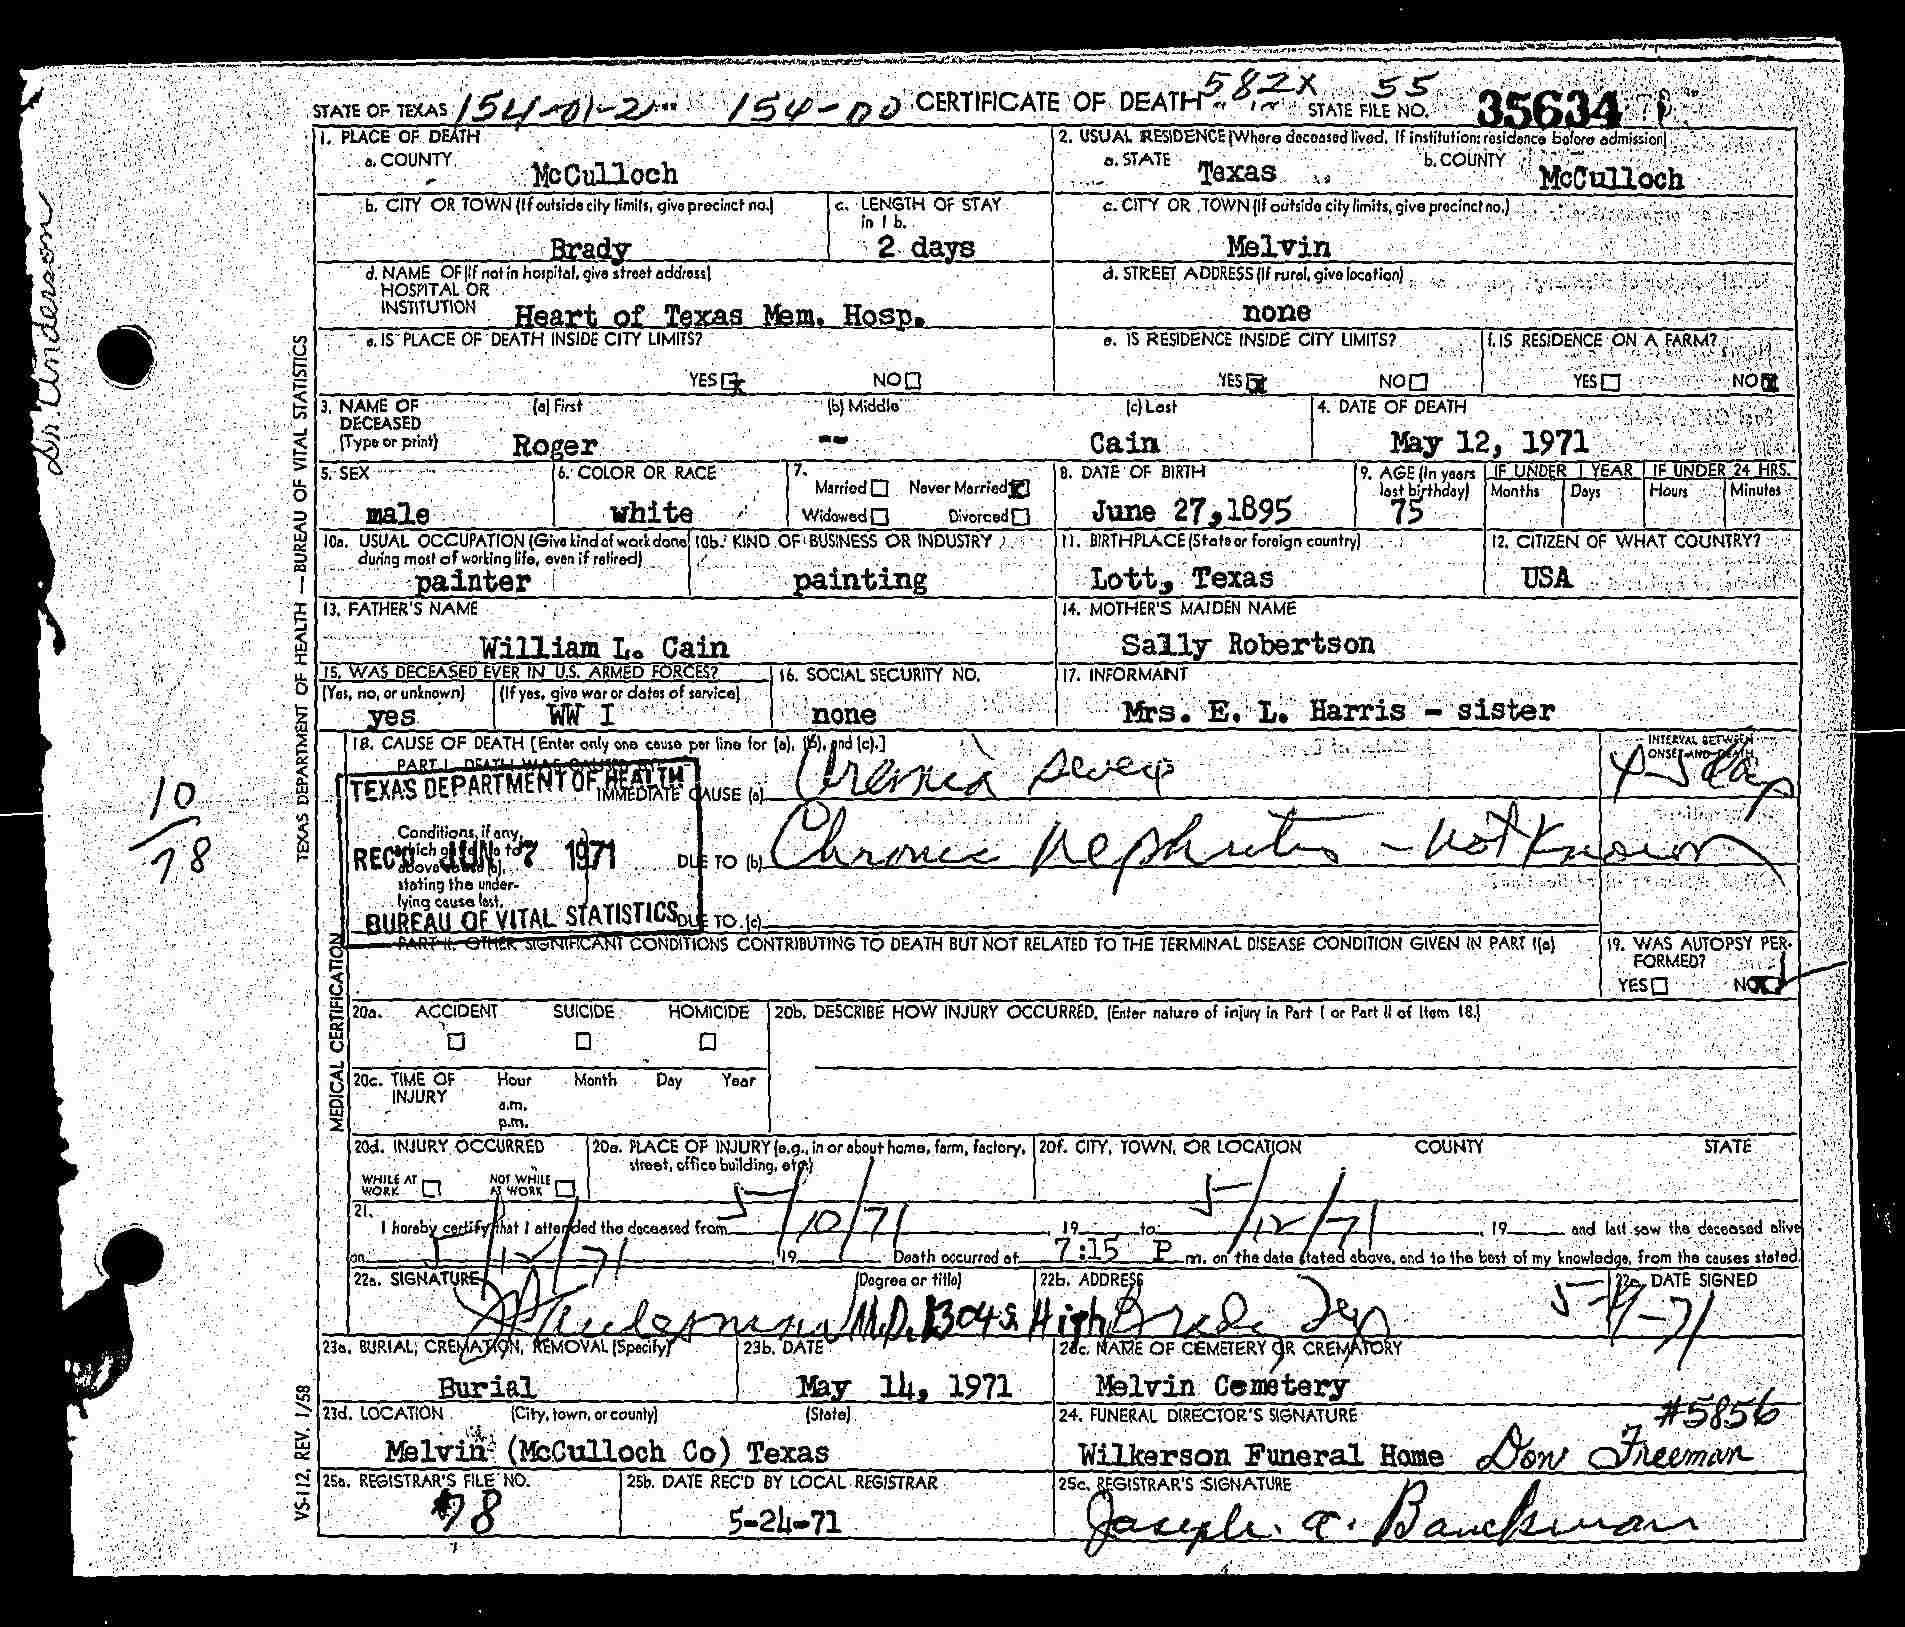 STATE OF TEXAS 154-01-2 154-00 CERTIFICATE OF DEATH 582X 55 STATE FILE NO. 35634
1. PLACE OF DEATH
a. COUNTY
McCulloch
2. USUAL RESIDENCE (Where deceased lived. If institution: residence before admission)
a. STATE Texas b. COUNTY McCulloch
b. CITY OR TOWN (If outside city limits, give precinct no.)
Brady
c. LENGTH OF STAY in 1 b.
2 days
c. CITY OR TOWN (If outside city limits, give precinct no.)
Melvin
d. NAME OF (If not in hospital, give street address)
HOSPITAL OR
INSTITUTION Heart of Texas Mem. Hosp.
d. STREET ADDRESS (If rural, give location)
none
e. IS PLACE OF DEATH INSIDE CITY LIMITS?
YES NO
e. IS RESIDENCE INSIDE CITY LIMITS?
YES NO
f. IS RESIDENCE ON A FARM?
YES NO
3. NAME OF DECEASED (Type or print)
(a) First (b) Middle (c) Last
Roger -- Cain
4. DATE OF DEATH
May 12, 1971
5. SEX
male
6. COLOR OR RACE
white
7.
Married Never Married
Widowed Divorced
8. DATE OF BIRTH
June 27,1895
9. AGE (In years last birthday)
75
IF UNDER 1 YEAR
Months Days
IF UNDER 24 HRS.
Hours Minutes
10a. USUAL OCCUPATION (Give kind of work done during most of working life, even if retired)
painter
10b. KIND OF BUSINESS OR INDUSTRY
painting
11. BIRTHPLACE (State or foreign country)
Lott, Texas
12. CITIZEN OF WHAT COUNTRY?
USA
13. FATHER'S NAME
William L. Cain
14. MOTHER'S MAIDEN NAME
Sally Robertson
15. WAS DECEASED EVER IN U.S. ARMED FORCES?
(Yes, no, or unknown) (If yes, give war or dates of service)
yes WW I
16. SOCIAL SECURITY NO.
none
17. INFORMANT
Mrs. E. L. Harris - sister
18. CAUSE OF DEATH [Enter only one cause per line for (a), (b), and (c).]
PART I. DEATH WAS CAUSED BY:
IMMEDIATE CAUSE (a) Uremia
INTERVAL BETWEEN
ONSET AND DEATH
Conditions, if any,
which gave rise to
above cause (a),
stating the under-
lying cause last.
DUE TO (b) Chronic Nephritis - not known
DUE TO (c)
TEXAS DEPARTMENT OF HEALTH
REC'D JUN 7 1971
BUREAU OF VITAL STATISTICS
PART II. OTHER SIGNIFICANT CONDITIONS CONTRIBUTING TO DEATH BUT NOT RELATED TO THE TERMINAL DISEASE CONDITION GIVEN IN PART I(a)
19. WAS AUTOPSY PER-
FORMED?
YES NO
20a. ACCIDENT SUICIDE HOMICIDE
20b. DESCRIBE HOW INJURY OCCURRED. (Enter nature of injury in Part I or Part II of Item 18.)
20c. TIME OF INJURY Hour Month Day Year
a.m.
p.m.
20d. INJURY OCCURRED
WHILE AT WORK NOT WHILE AT WORK
20e. PLACE OF INJURY (e.g., in or about home, farm, factory, street, office building, etc.)
20f. CITY, TOWN, OR LOCATION COUNTY STATE
21.
I hereby certify that I attended the deceased from 5/10/71, 19 to 5/12/71, 19 and last saw the deceased alive
on 5/12/71, 19 Death occurred at 7:15 P m. on the date stated above, and to the best of my knowledge, from the causes stated.
22a. SIGNATURE (Degree or title)
Anderson M.D.
22b. ADDRESS
1304 S. High Brady Tex
22c. DATE SIGNED
23a. BURIAL, CREMATION, REMOVAL (Specify)
Burial
23b. DATE
May 14, 1971
23c. NAME OF CEMETERY OR CREMATORY
Melvin Cemetery
23d. LOCATION (City, town, or county) (State)
Melvin (McCulloch Co) Texas
24. FUNERAL DIRECTOR'S SIGNATURE #5856
Wilkerson Funeral Home Don Freeman
25a. REGISTRAR'S FILE NO.
78
25b. DATE REC'D BY LOCAL REGISTRAR
5-24-71
25c. REGISTRAR'S SIGNATURE
Joseph A. Banckman
TEXAS DEPARTMENT OF HEALTH — BUREAU OF VITAL STATISTICS
MEDICAL CERTIFICATION
VS-112, REV. 1/58
Dr. Anderson
10
78